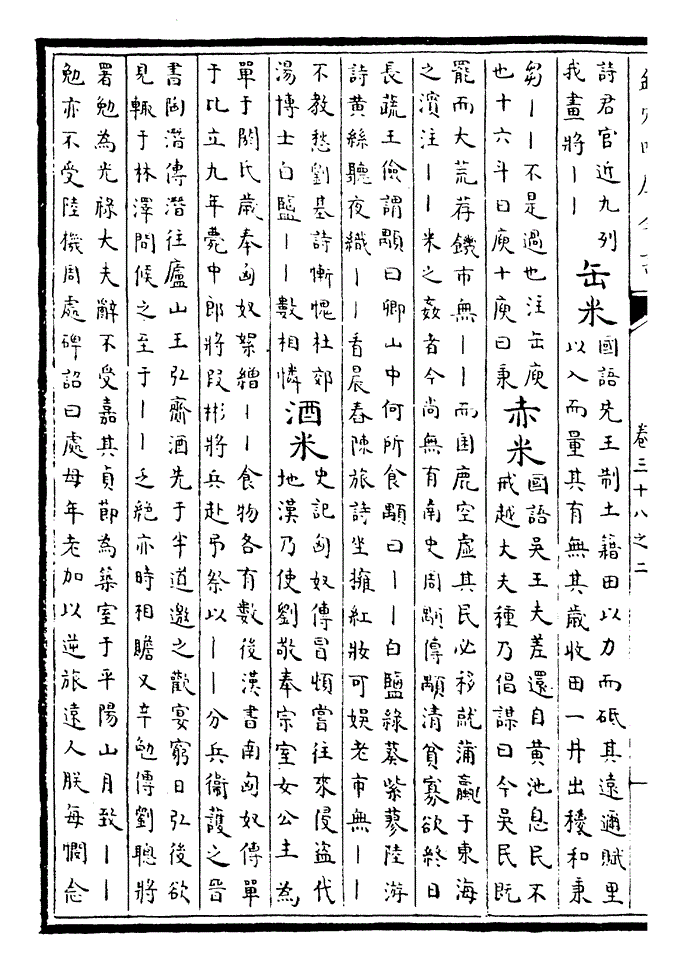 卷三十八之二
一
詩君官近九列
我畫將丨丨
缶米
國語先王制土籍田以力而砥其遠邇賦里
以入而量其有無其歲收田一井出稯和秉
芻丨丨不是過也注缶庾
也十六斗曰庾十庾曰秉
赤米
國語吳王夫差還自黃池息民不
戒越大夫種乃倡謀曰今吳民既
罷而大荒荐饑市無丨丨而囷鹿空虛其民必移就蒲蠃于東海
之濱注丨丨米之姦者今尚無有南史周顒傳顒清貧寡欲終日
長蔬王儉謂顒曰卿山中何所食顒曰丨丨白鹽綠葵紫蓼陸游
詩黃絲聽夜織丨丨看晨舂陳旅詩坐擁紅妝可娛老市無丨丨
不教愁劉基詩慚愧杜郊
湯博士白鹽丨丨數相憐
酒米
史記匈奴傳冒頓嘗往來侵盜代
地漢乃使劉敬奉宗室女公主為
單于閼氏歲奉匈奴絮繒丨丨食物各有數後漢書南匈奴傳單
于比立九年薨中郎將段彬將兵赴弔祭以丨丨分兵衞護之晉
書陶潛傳潛往廬山王弘齎酒先于半道邀之歡宴窮日弘後欲
見輒于林澤間候之至于丨丨乏絕亦時相贍又辛勉傳劉聰將
署勉為光祿大夫辭不受嘉其貞節為築室于平陽山月致丨丨
勉亦不受陸機周處碑詔曰處母年老加以逆旅遠人朕每憫念